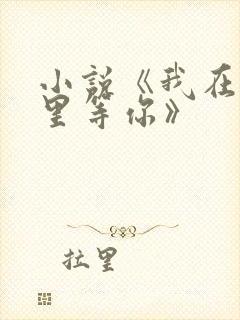 小说《我在
里等你》
拉里